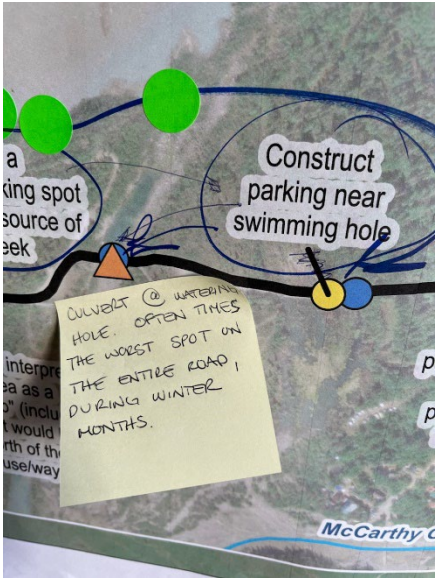 a
king spot
source of
eek
Construct
parking near
swimming hole
CULVERT @ WATERING
HOLE. OFTEN TIMES
THE WORST SPOT ON
THE ENTIRE ROAD,
DURING WINTER
MONTHS.
interpre
ea as a
(inclu
t would
rth of the
use/way
p
p
McCarthy C